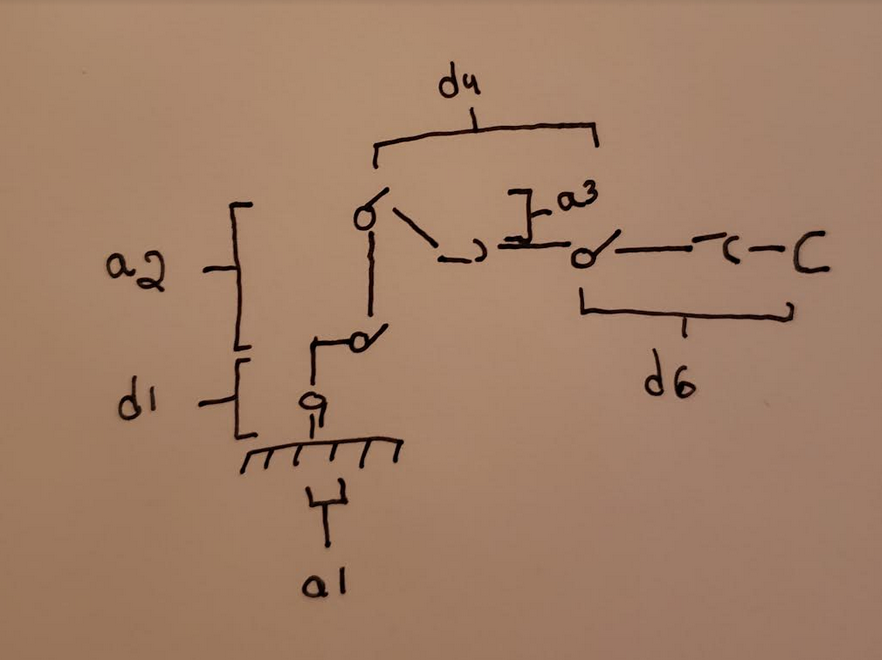 d4
a3
a2
d1
d6
a1